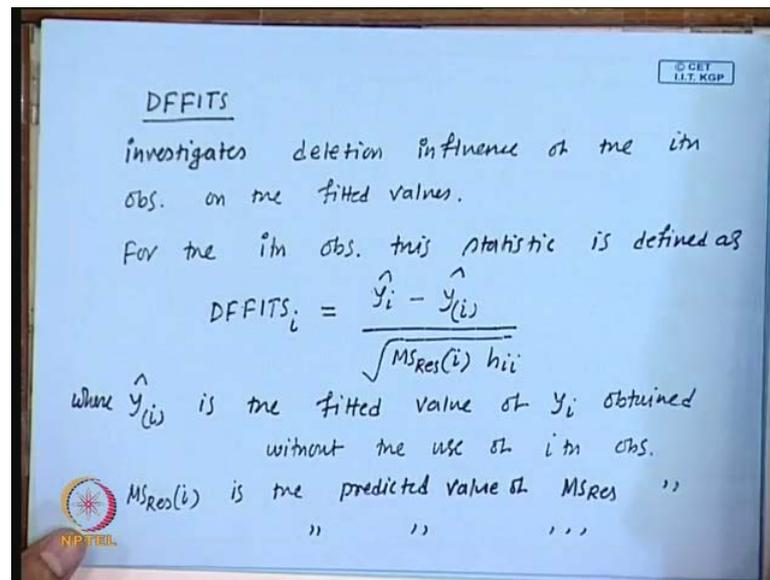 © CET
I.I.T. KGP
DFFITS
investigates deletion influence of the ith
obs. on the fitted values.
For the ith obs. this statistic is defined as
DFFITS_i = (ŷ_i − ŷ_(i)) / √(MS_Res(i) h_ii)
where ŷ_(i) is the fitted value of y_i obtained
without the use of i th obs.
MS_Res(i) is the predicted value of MS_Res ,,
,, ,, ,,,
NPTEL